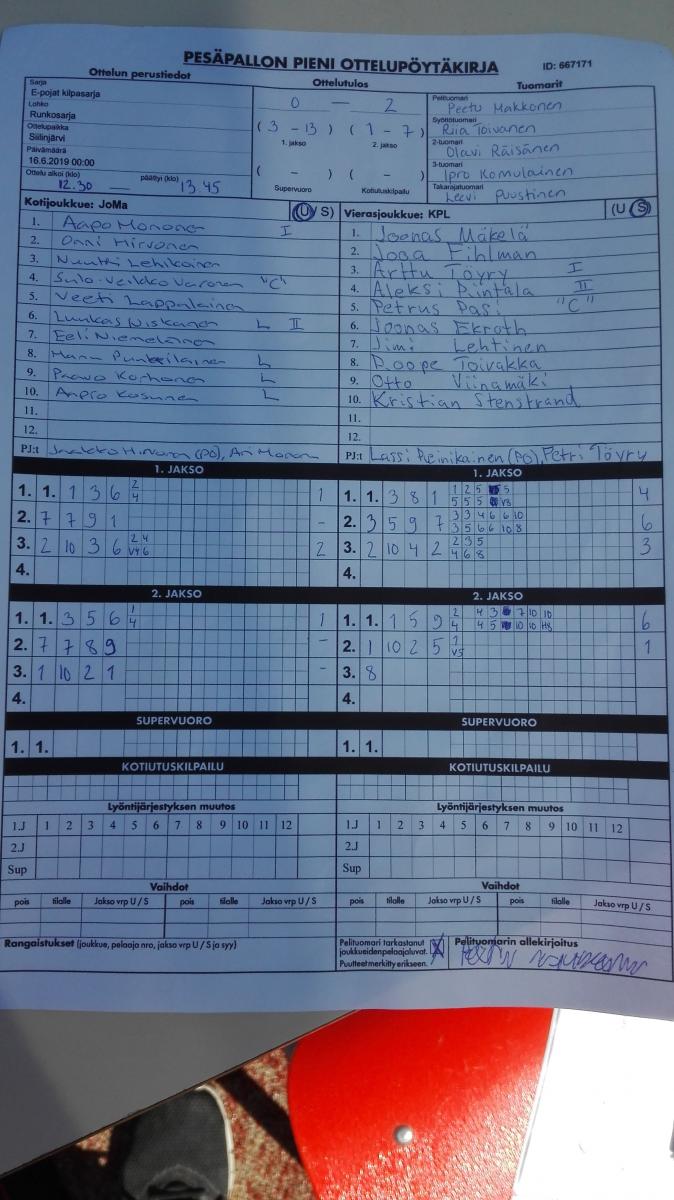 PESÄPALLON PIENI OTTELUPÖYTÄKIRJA
ID: 667171
Ottelun perustiedot
Ottelutulos
Tuomarit
Sarja
E-pojat kilpasarja
Lohko
Runkosarja
Ottelupaikka
Siilinjärvi
Päivämäärä
16.6.2019 00:00
Ottelu alkoi (klo) päättyi (klo)
12.30 13.45
0 — 2
(3 - 13) (1 - 7)
1. jakso 2. jakso
( - ) ( - )
Supervuoro Kotiutuskilpailu
Pelituomari
Peetu Makkonen
Syöttötuomari
Riia Toivanen
2-tuomari
Olavi Räisänen
3-tuomari
Ipro Komulainen
Takarajatuomari
Leevi Puustinen
Kotijoukkue: JoMa (U/S)
1. Aapo Mononen I
2. Onni Hirvonen
3. Nuutti Lehikoinen
4. Sulo-Veikko Varonen "C"
5. Veeti Lappalainen
6. Luukas Niskanen L II
7. Eeli Niemeläinen
8. L
9. Paavo Korhonen L
10. Kosunen L
11.
12.
PJ:t Jaakko Hirvonen (PO), Ari Mononen
Vierasjoukkue: KPL (U/S)
1. Joonas Mäkelä
2. Jooa Fihlman
3. Arttu Töyry I
4. Aleksi Rintala II
5. Petrus Pasi "C"
6. Joonas Ekroth
7. Jimi Lehtinen
8. Roope Toivakka
9. Otto Viinamäki
10. Kristian Stenstrand
11.
12.
PJ:t Lassi Reinikainen (PO), Petri Töyry
1. JAKSO
1. 1. 1 3 6 2 1
4
2. 7 7 9 1 -
3. 2 10 3 6 2 4 2
V4 6
4.
1. JAKSO
1. 1. 3 8 1 1 2 5 5 4
5 5 5 V8
2. 3 5 9 7 3 3 4 6 6 10 6
3 5 6 6 10 8
3. 2 10 4 2 2 3 5 3
4 6 8
4.
2. JAKSO
1. 1. 3 5 6 1 1
4
2. 7 7 8 9 -
3. 1 10 2 1 -
4.
2. JAKSO
1. 1. 1 5 9 2 4 3 7 10 10 6
4 4 5 10 10 H8
2. 1 10 2 5 1 1
V5
3. 8
4.
SUPERVUORO
1. 1.
SUPERVUORO
1. 1.
KOTIUTUSKILPAILU
KOTIUTUSKILPAILU
Lyöntijärjestyksen muutos
1.J 1 2 3 4 5 6 7 8 9 10 11 12
2.J
Sup
Lyöntijärjestyksen muutos
1.J 1 2 3 4 5 6 7 8 9 10 11 12
2.J
Sup
Vaihdot
pois tilalle Jakso vrp U / S pois tilalle Jakso vrp U / S
Vaihdot
pois tilalle Jakso vrp U / S pois tilalle Jakso vrp U / S
Rangaistukset (joukkue, pelaaja nro, jakso vrp U / S ja syy)
Pelituomari tarkastanut
joukkueiden pelaajaluvat. X
Puutteet merkitty erikseen.
Pelituomarin allekirjoitus